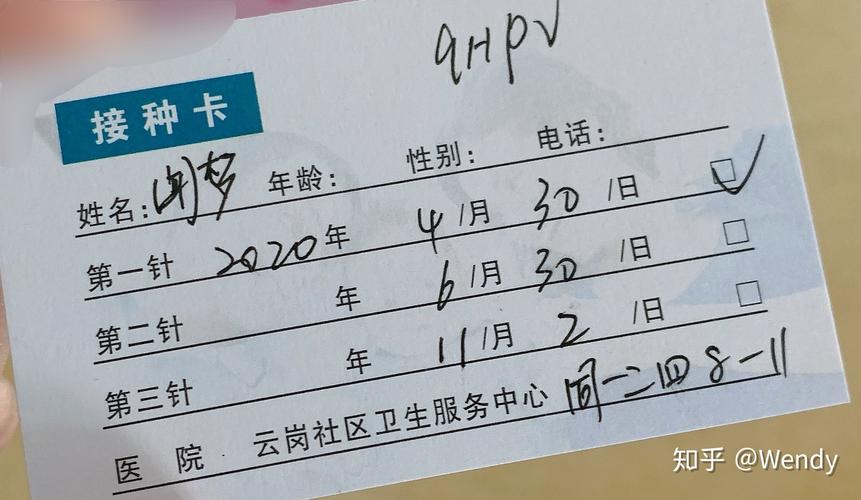 9HPV
接种卡
姓名: 闻梦 年龄: 性别: 电话:
第一针 2020年 4/月 30/日 □✓
第二针 年 6/月 30/日 □
第三针 年 11/月 2/日 □
医 院 云岗社区卫生服务中心 周一二四 8-11
知乎 @Wendy